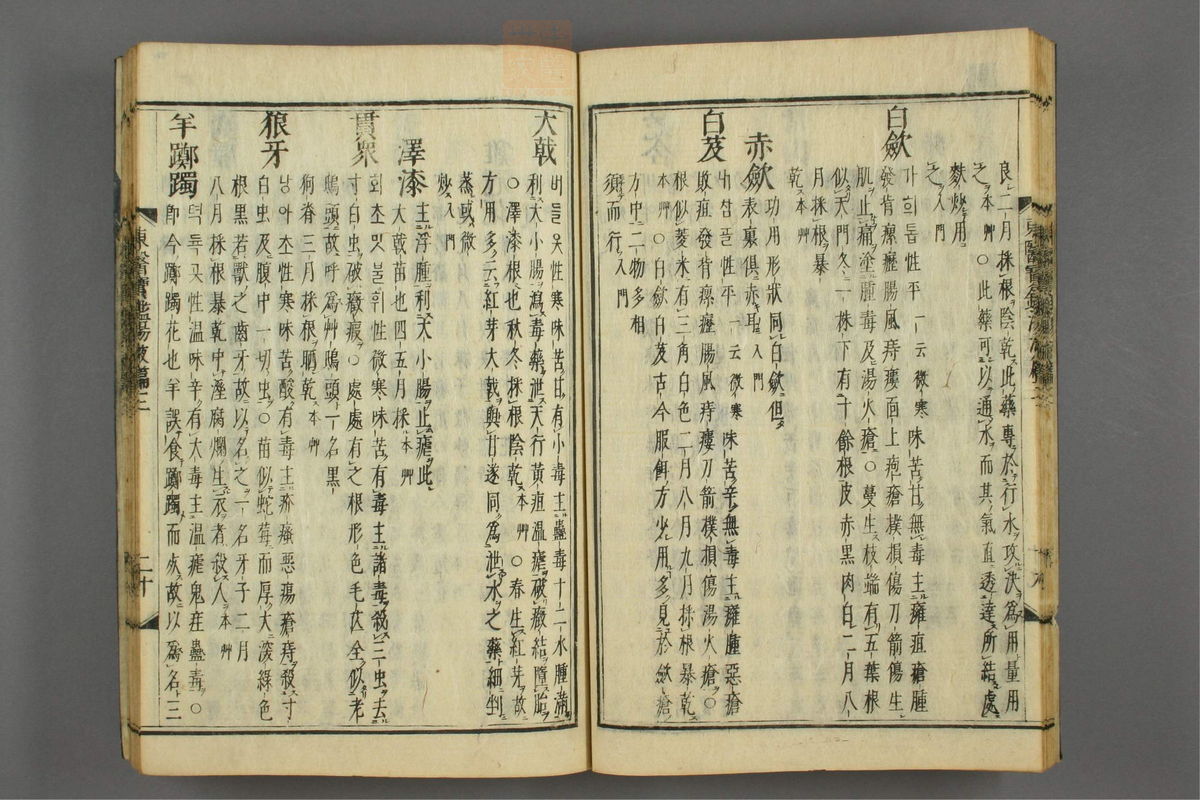 良二月採根陰乾此藥專於行水攻決爲用量用
之本艸○此藥可以通水而其氣直透達所結處
麩炒用
之入門
白斂
가희톱性平一云微寒味苦甘無毒主癰疽瘡腫
發背瘰癧腸風痔瘻面上疱瘡撲損傷刀箭傷生
肌止痛塗腫毒及湯火瘡○蔓生枝端有五葉根
似天門冬一株下有十餘根皮赤黑肉白二月八
月採根暴
乾本艸
赤斂
功用形狀同白斂但
表裏俱赤耳入門
白芨
대왐풀性平一云微寒味苦辛無毒主癰腫惡瘡
敗疽發背瘰癧腸風痔瘻刀箭撲損傷湯火瘡○
根似菱米有三角白色二月八月九月採根暴乾
本艸○白斂白芨古今服餌方少用多見於斂瘡
方中二物多相
須而行入門
大戟
버들옷性寒味苦甘有小毒主蠱毒十二水腫滿
利大小腸瀉毒藥泄天行黃疸溫瘧破癥結墮胎
○澤漆根也秋冬採根陰乾本艸○春生紅芽故
方用多云紅芽大戟與甘遂同爲泄水之藥細剉
蒸或微
炒入門
澤漆
主浮腫利大小腸止瘧此
大戟苗也四五月採本艸
貫衆
회초밋불휘性微寒味苦有毒主諸毒殺三虫去
寸白虫破癥瘕○處處有之根形色毛芒全似老
鴟頭故呼爲草鴟頭一名黑
狗脊三月採根曬乾本艸
狼牙
낭아초性寒味苦酸有毒主疥瘙惡瘍瘡痔殺寸
白虫及腹中一切虫○苗似蛇莓而厚大深綠色
根黑若獸之齒牙故以名之一名牙子二月
八月採根暴乾中濕腐爛生衣者殺人本艸
羊躑躅
텩툑곳性溫味辛有大毒主溫瘧鬼疰蠱毒○
卽今躑躅花也羊誤食躑躅而死故以爲名三
東醫寶鑑湯液篇三
二十